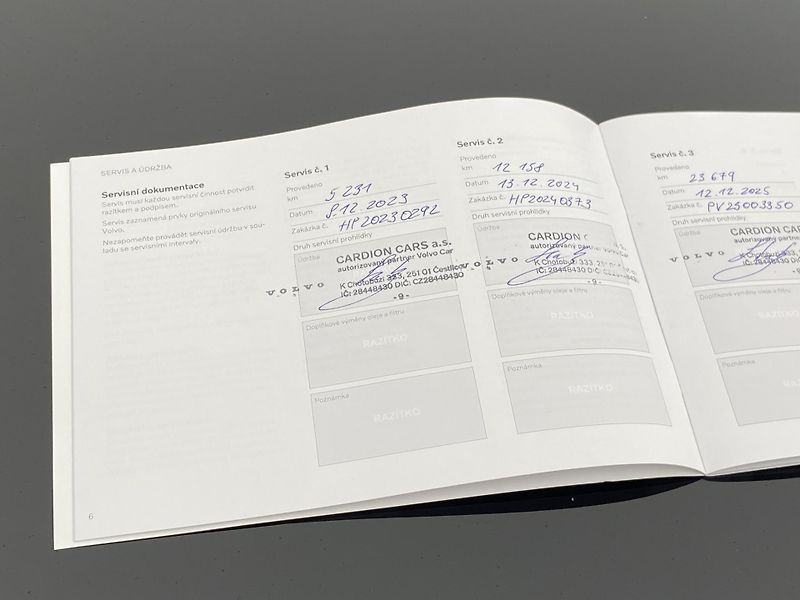 SERVIS A ÚDRŽBA
Servisní dokumentace
Servis musí každou servisní činnost potvrdit
razítkem a podpisem.
Servis zaznamená prvky originálního servisu
Volvo.
Nezapomeňte provádět servisní údržbu v sou-
ladu se servisními intervaly.
6
Servis č. 1
Provedeno
km 5 231
Datum 8.12.2023
Zakázka č. HP20230292
Druh servisní prohlídky
Údržba
CARDION CARS a.s.
autorizovaný partner Volvo Car
VOLVO
K Chotobuzi 333, 251 01 Čestlice
IČ: 28448430 DIČ: CZ28448430
-9-
Doplňkové výměny oleje a filtru
RAZÍTKO
Poznámka
RAZÍTKO
Servis č. 2
Provedeno
km 12 158
Datum 13.12.2024
Zakázka č. HP20240373
Druh servisní prohlídky
Údržba
CARDION
autorizovaný partner
VOLVO
K Chotobuzi 333, 251
IČ: 28448430 DIČ:
-9-
Doplňkové výměny oleje a filtru
RAZÍTKO
Poznámka
RAZÍTKO
Servis č. 3
Provedeno
km 23 679
Datum 12.12.2025
Zakázka č. PV25003350
Druh servisní prohlídky
Údržba
CARDION CARS
autorizovaný partner
VOLVO
K Chotobuzi 333
IČ: 28448430
Doplňkové výměny oleje
RAZÍTKO
Poznámka
RAZÍTKO